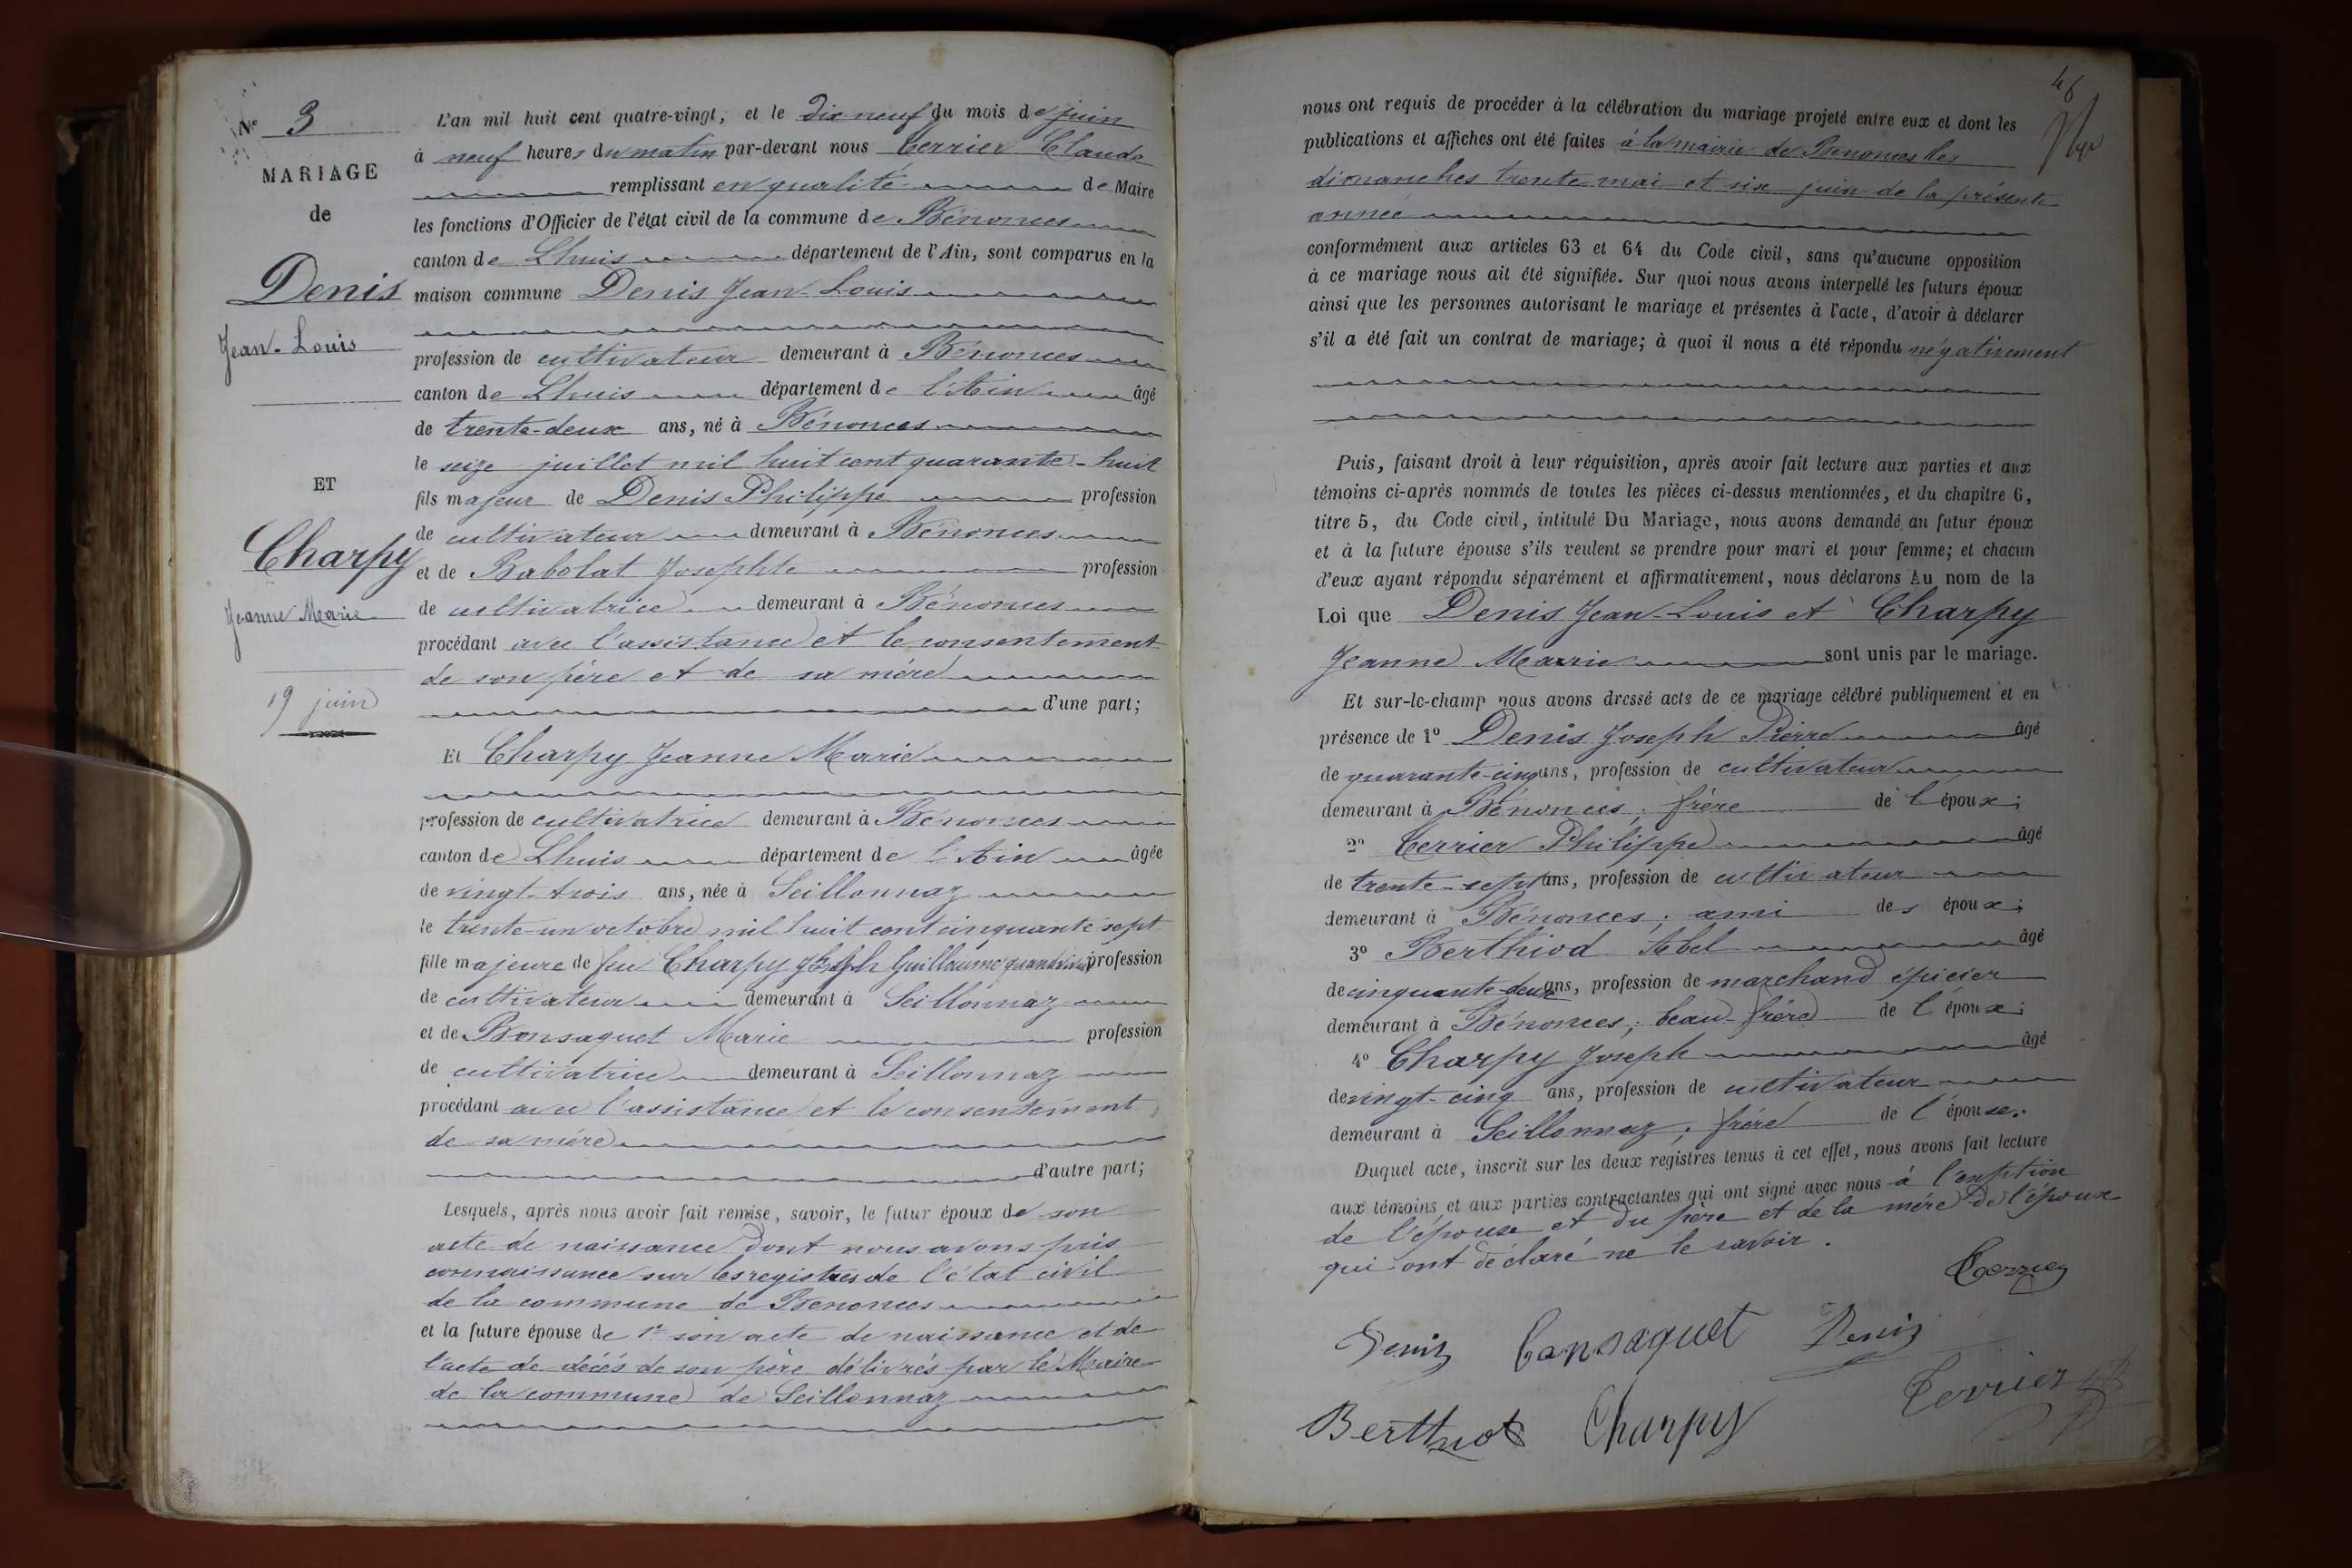 Nº 3
MARIAGE
de
Denis
Jean-Louis
ET
Charpy
Jeanne Marie
19 juin
L'an mil huit cent quatre-vingt, et le dix-neuf du mois de juin
à neuf heures du matin par-devant nous Cerrier Claude
remplissant en qualité de Maire
les fonctions d'Officier de l'état civil de la commune de Bénonces
canton de Lhuis département de l'Ain, sont comparus en la
maison commune Denis Jean-Louis
profession de cultivateur demeurant à Bénonces
canton de Lhuis département de l'Ain âgé
de trente-deux ans, né à Bénonces
le seize juillet mil huit cent quarante-huit
fils majeur de Denis Philippe profession
de cultivateur demeurant à Bénonces
et de Babolat Josephte profession
de cultivatrice demeurant à Bénonces
procédant avec l'assistance et le consentement
de son père et de sa mère
d'une part;
Et Charpy Jeanne Marie
profession de cultivatrice demeurant à Bénonces
canton de Lhuis département de l'Ain âgée
de vingt-trois ans, née à Seillonnaz
le trente-un octobre mil huit cent cinquante sept
fille majeure de feu Charpy Joseph Guillaume quand vivait profession
de cultivateur demeurant à Seillonnaz
et de Bonsaquet Marie profession
de cultivatrice demeurant à Seillonnaz
procédant avec l'assistance et le consentement
de sa mère
d'autre part;
Lesquels, après nous avoir fait remise, savoir, le futur époux de son
acte de naissance dont nous avons pris
connaissance sur les registres de l'état civil
de la commune de Benonces
et la future épouse de 1º son acte de naissance et de
l'acte de décès de son père délivrés par le Maire
de la commune de Seillonnaz
46
nous ont requis de procéder à la célébration du mariage projeté entre eux et dont les
publications et affiches ont été faites à la mairie de Benonces les
dimanches trente mai et six juin de la présente
année
conformément aux articles 63 et 64 du Code civil, sans qu'aucune opposition
à ce mariage nous ait été signifiée. Sur quoi nous avons interpellé les futurs époux
ainsi que les personnes autorisant le mariage et présentes à l'acte, d'avoir à déclarer
s'il a été fait un contrat de mariage; à quoi il nous a été répondu négativement
Puis, faisant droit à leur réquisition, après avoir fait lecture aux parties et aux
témoins ci-après nommés de toutes les pièces ci-dessus mentionnées, et du chapitre 6,
titre 5, du Code civil, intitulé Du Mariage, nous avons demandé au futur époux
et à la future épouse s'ils veulent se prendre pour mari et pour femme; et chacun
d'eux ayant répondu séparément et affirmativement, nous déclarons Au nom de la
Loi que Denis Jean-Louis et Charpy
Jeanne Marie sont unis par le mariage.
Et sur-le-champ nous avons dressé acte de ce mariage célébré publiquement et en
présence de 1º Denis Joseph Pierre âgé
de quarante-cinq ans, profession de cultivateur
demeurant à Bénonces; frère de l'époux;
2º Cerrier Philippe âgé
de trente-sept ans, profession de cultivateur
demeurant à Bénonces; ami des époux;
3º Berthiod Abel âgé
de cinquante-deux ans, profession de marchand épicier
demeurant à Bénonces; beau-frère de l'époux;
4º Charpy Joseph âgé
de vingt-cinq ans, profession de cultivateur
demeurant à Seillonnaz; frère de l'épouse.
Duquel acte, inscrit sur les deux registres tenus à cet effet, nous avons fait lecture
aux témoins et aux parties contractantes qui ont signé avec nous à l'exeption
de l'épouse et du père et de la mère de l'époux
qui ont déclaré ne le savoir.
Cerrier
Denis Consaquet Denis
Cerrier
Berthiod Charpy